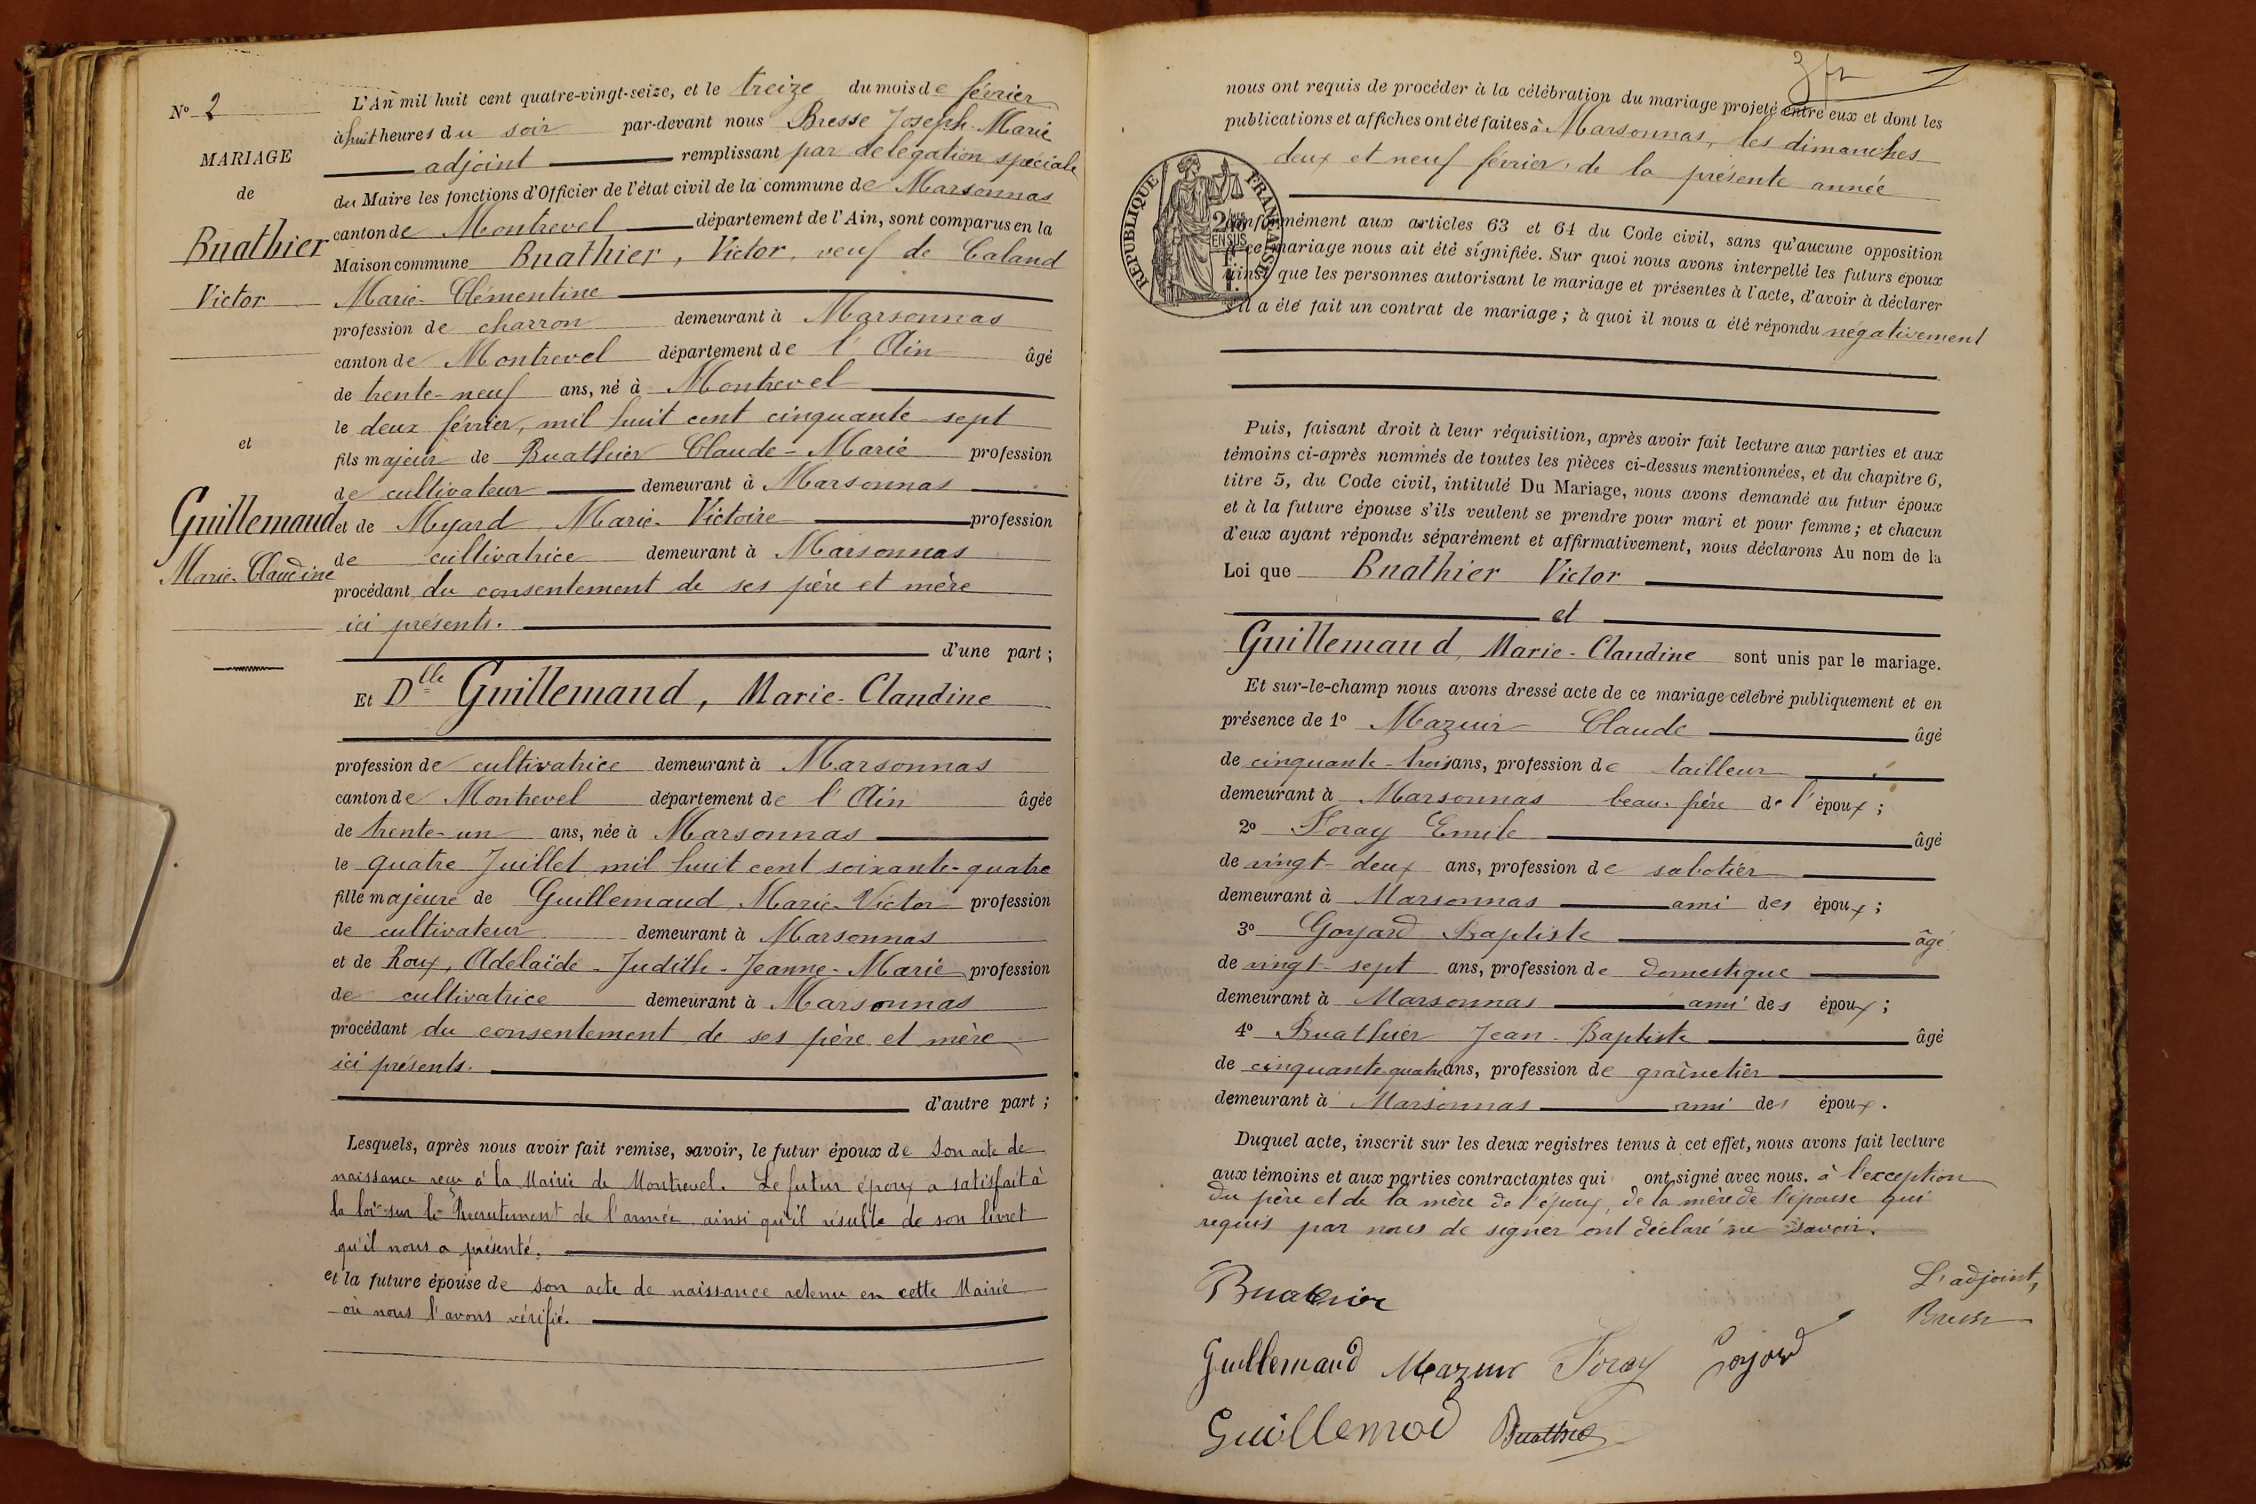 N° 2
MARIAGE
de
Buathier
Victor
et
Guillemaud
Marie-Claudine
L'An mil huit cent quatre-vingt-seize, et le treize du mois de février
à huit heures du soir par-devant nous Bresse Joseph-Marie
adjoint remplissant par délégation spéciale
du Maire les fonctions d'Officier de l'état civil de la commune de Marsonnas
canton de Montrevel département de l'Ain, sont comparus en la
Maison commune Buathier, Victor, veuf de Caland
Marie-Clémentine
profession de charron demeurant à Marsonnas
canton de Montrevel département de l'Ain âgé
de trente-neuf ans, né à Montrevel
le deux février, mil huit cent cinquante-sept
fils majeur de Buathier Claude-Marie profession
de cultivateur demeurant à Marsonnas
et de Myard Marie-Victoire profession
de cultivatrice demeurant à Marsonnas
procédant du consentement de ses père et mère
ici présents.
d'une part ;
Et Dlle Guillemaud, Marie-Claudine
profession de cultivatrice demeurant à Marsonnas
canton de Montrevel département de l'Ain âgée
de trente-un ans, née à Marsonnas
le quatre Juillet mil huit cent soixante-quatre
fille majeure de Guillemaud Marie-Victor profession
de cultivateur demeurant à Marsonnas
et de Roux, Adelaïde-Judith-Jeanne-Marie profession
de cultivatrice demeurant à Marsonnas
procédant du consentement de ses père et mère
ici présents.
d'autre part ;
Lesquels, après nous avoir fait remise, savoir, le futur époux de son acte de
naissance reçu à la Mairie de Montrevel. Le futur époux a satisfait à
la loi sur le Recrutement de l'armée ainsi qu'il résulte de son livret
qu'il nous a présenté.
et la future épouse de son acte de naissance retenu en cette Mairie
où nous l'avons vérifié.
nous ont requis de procéder à la célébration du mariage projeté entre eux et dont les
publications et affiches ont été faites à Marsonnas, les dimanches
deux et neuf février de la présente année
RÉPUBLIQUE FRANÇAISE
conformément aux articles 63 et 64 du Code civil, sans qu'aucune opposition
à ce mariage nous ait été signifiée. Sur quoi nous avons interpellé les futurs époux
ainsi que les personnes autorisant le mariage et présentes à l'acte, d'avoir à déclarer
s'il a été fait un contrat de mariage ; à quoi il nous a été répondu négativement
Puis, faisant droit à leur réquisition, après avoir fait lecture aux parties et aux
témoins ci-après nommés de toutes les pièces ci-dessus mentionnées, et du chapitre 6,
titre 5, du Code civil, intitulé Du Mariage, nous avons demandé au futur époux
et à la future épouse s'ils veulent se prendre pour mari et pour femme ; et chacun
d'eux ayant répondu séparément et affirmativement, nous déclarons Au nom de la
Loi que Buathier Victor
et
Guillemaud, Marie-Claudine sont unis par le mariage.
Et sur-le-champ nous avons dressé acte de ce mariage célébré publiquement et en
présence de 1° Mazuir Claude âgé
de cinquante-trois ans, profession de tailleur
demeurant à Marsonnas beau-frère de l'époux ;
2° Foray Emile âgé
de vingt-deux ans, profession de sabotier
demeurant à Marsonnas ami des époux ;
3° Goyard Baptiste âgé
de vingt-sept ans, profession de domestique
demeurant à Marsonnas ami des époux ;
4° Buathier Jean-Baptiste âgé
de cinquante quatre ans, profession de grainetier
demeurant à Marsonnas ami des époux.
Duquel acte, inscrit sur les deux registres tenus à cet effet, nous avons fait lecture
aux témoins et aux parties contractantes qui ont signé avec nous. à l'exception
du père et de la mère de l'époux, de la mère de l'épouse qui
requis par nous de signer ont déclaré ne savoir.
L'adjoint,
Buathier
Bresse
Guillemaud Mazuir Foray Goyard
Guillemod Buathier